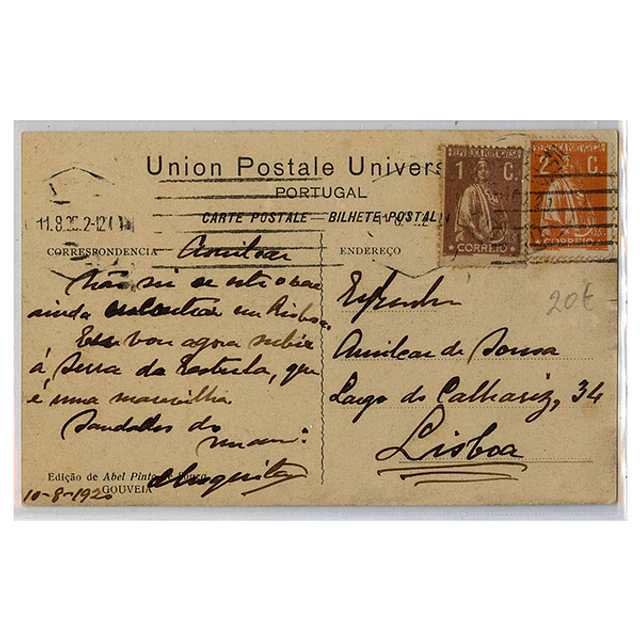 Union Postale Univers
PORTUGAL
CARTE POSTALE — BILHETE POSTAL
REPUBLICA PORTUGUESA
1 C.
CORREIO
REPUBLICA PORTUGUESA
2 ½ C.
CORREIO
11.8. 2-12
CORRESPONDENCIA
ENDEREÇO
Amilcar
Não sei se este vae
ainda em Lisboa.
Eu vou agora subir
á Serra da Estrella, que
é uma maravilha.
Saudades do
mano:
20€
Amilcar de Sousa
Largo do Calhariz, 34
Lisboa
Edição de Abel Pinto de Sousa
GOUVEIA
10-8-1920